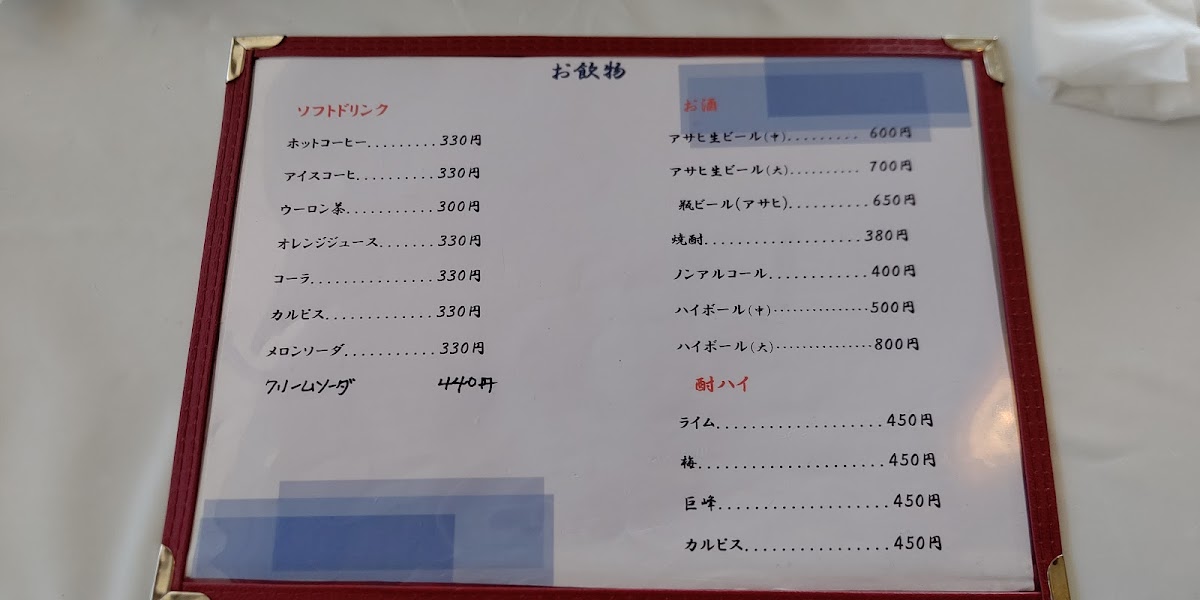 お飲物
ソフトドリンク
ホットコーヒー.........330円
アイスコーヒ..........330円
ウーロン茶...........300円
オレンジジュース.......330円
コーラ...............330円
カルピス.............330円
メロンソーダ...........330円
クリームソーダ 440円
お酒
アサヒ生ビール(中)......... 600円
アサヒ生ビール(大).......... 700円
瓶ビール(アサヒ)..........650円
焼酎...................380円
ノンアルコール............400円
ハイボール(中)···············500円
ハイボール(大)···············800円
酎ハイ
ライム....................450円
梅.......................450円
巨峰.....................450円
カルピス..................450円